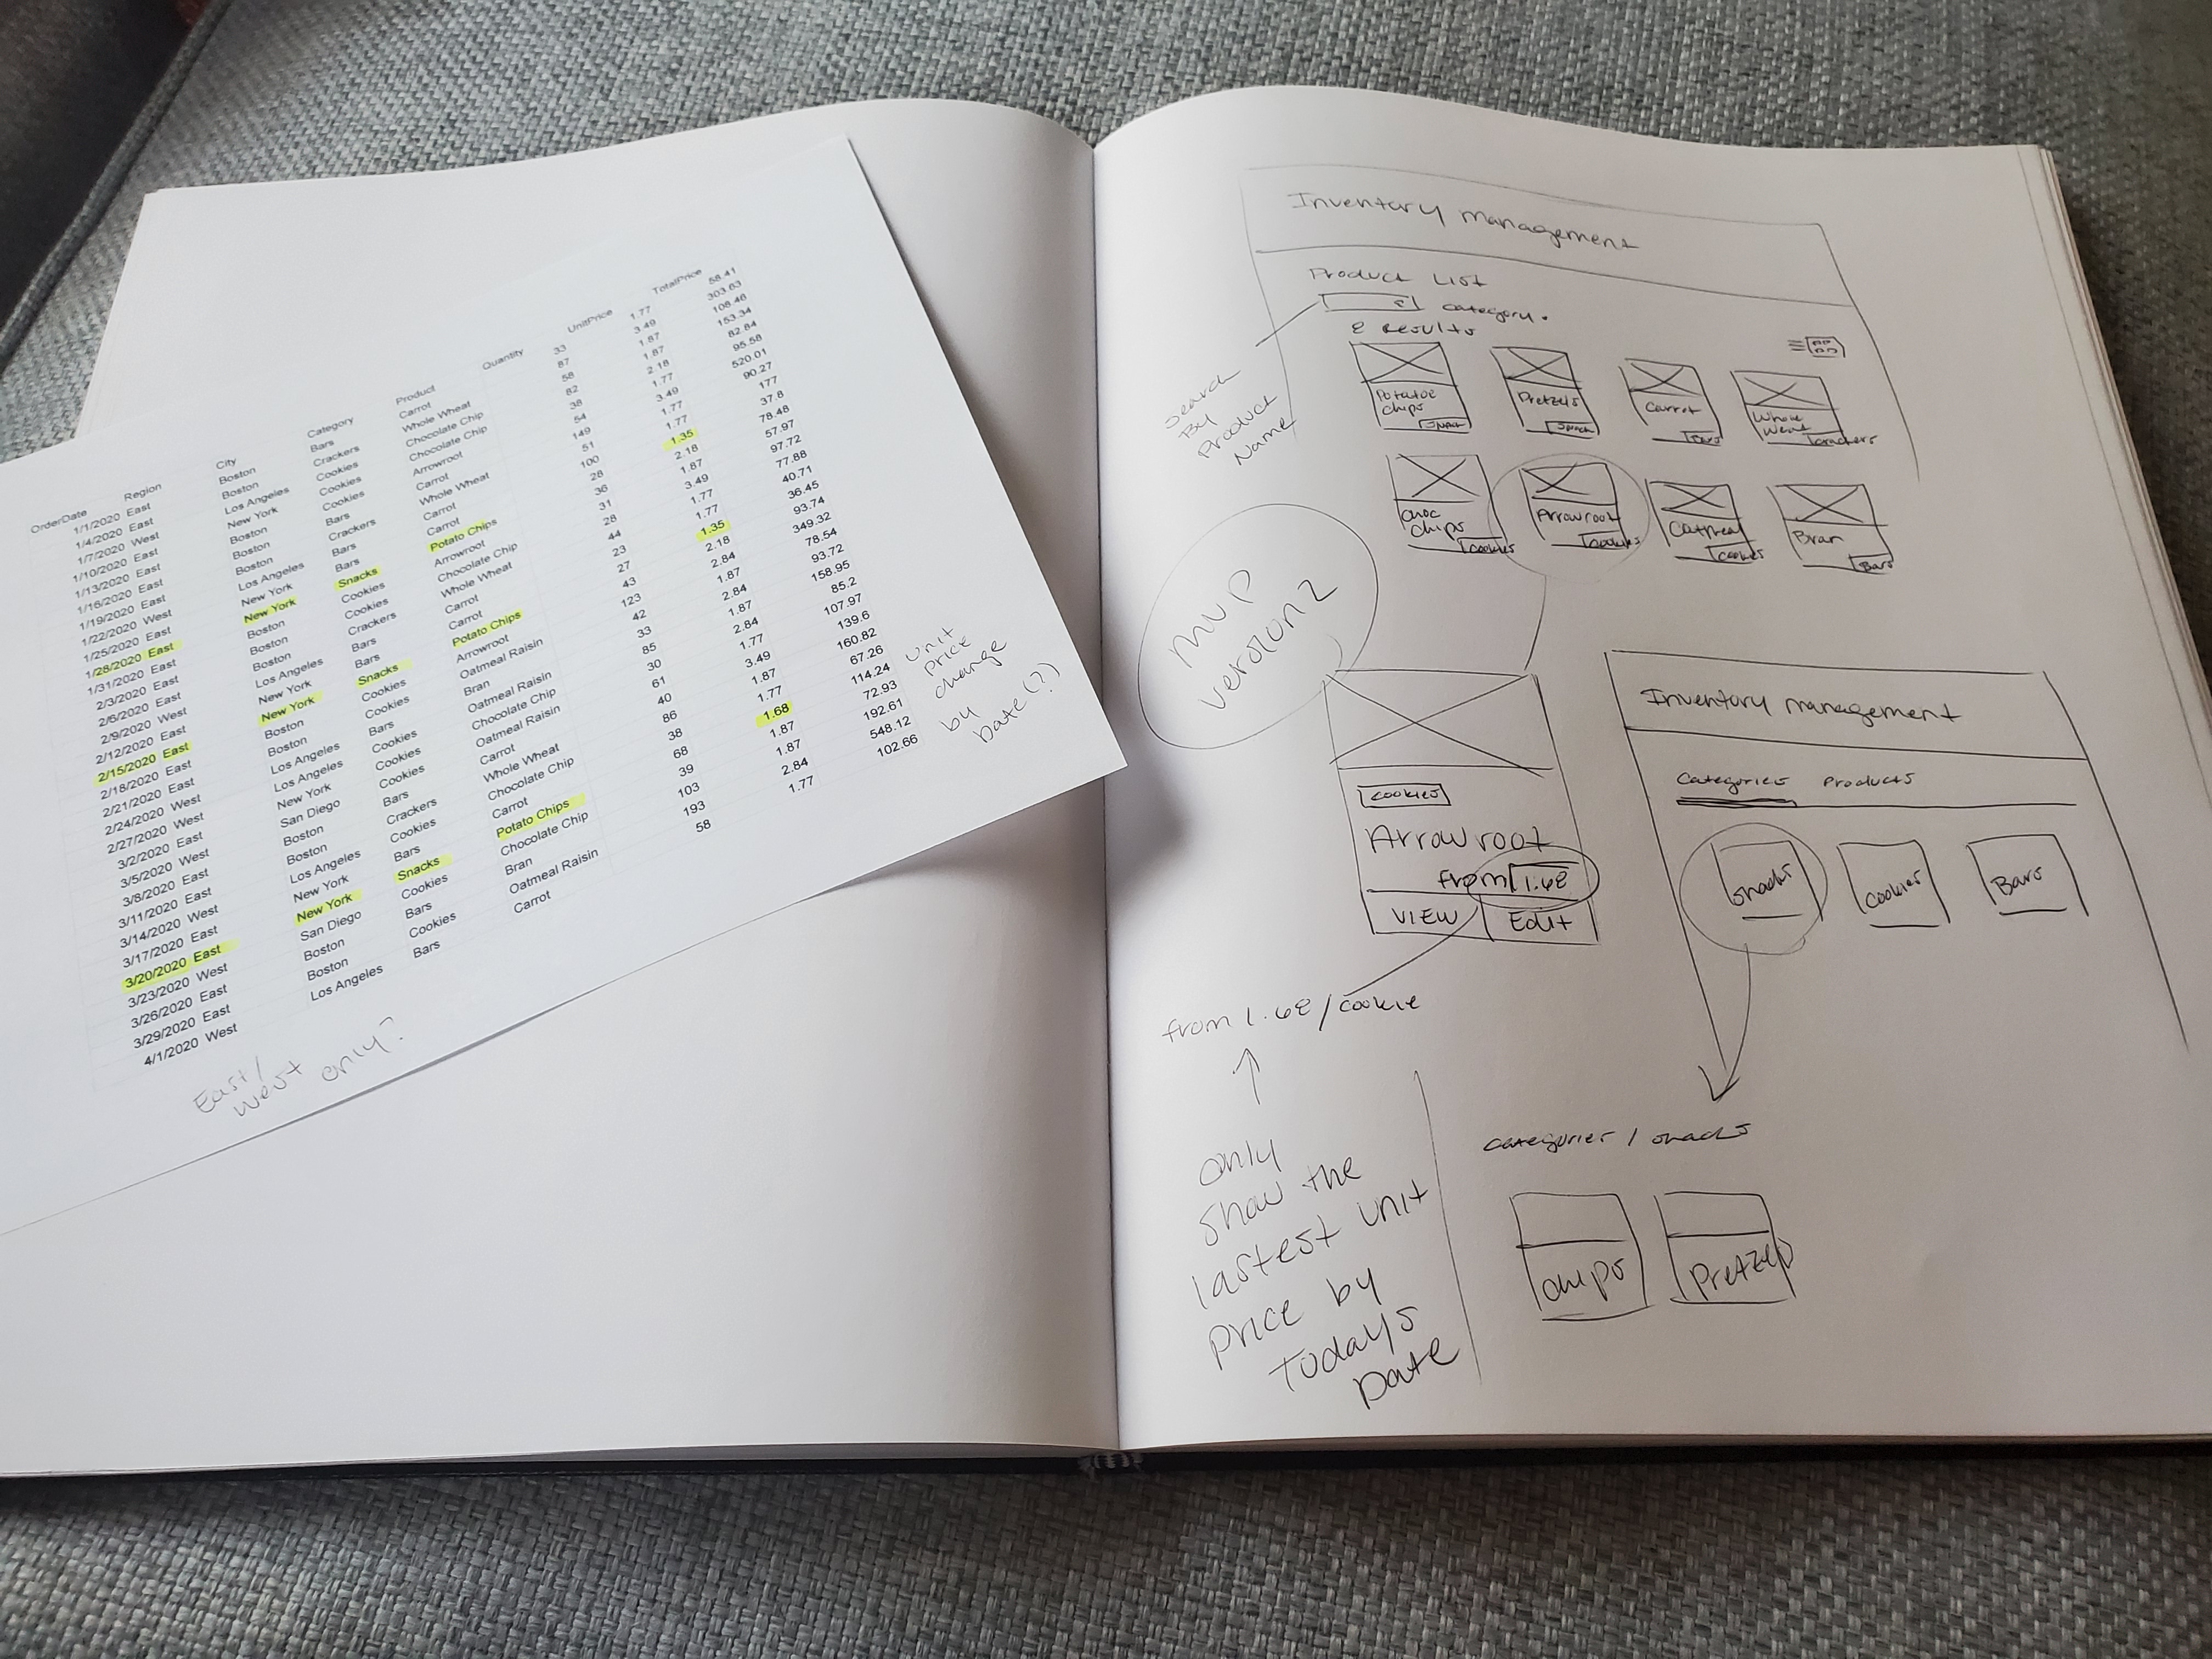 OrderDate Region City Category Product Quantity UnitPrice TotalPrice
1/1/2020 East Boston Bars Carrot 33 1.77 58.41
1/4/2020 East Boston Crackers Whole Wheat 87 3.49 303.63
1/7/2020 West Los Angeles Cookies Chocolate Chip 58 1.87 108.46
1/10/2020 East New York Cookies Chocolate Chip 82 1.87 153.34
1/13/2020 East Boston Cookies Arrowroot 38 2.18 82.84
1/16/2020 East Boston Bars Carrot 54 1.77 95.58
1/19/2020 East Boston Crackers Whole Wheat 149 3.49 520.01
1/22/2020 West Los Angeles Bars Carrot 51 1.77 90.27
1/25/2020 East New York Bars Carrot 100 1.77 177
1/28/2020 East New York Snacks Potato Chips 28 1.35 37.8
1/31/2020 East Boston Cookies Arrowroot 36 2.18 78.48
2/3/2020 East Boston Cookies Chocolate Chip 31 1.87 57.97
2/6/2020 East Boston Crackers Whole Wheat 28 3.49 97.72
2/9/2020 West Los Angeles Bars Carrot 44 1.77 77.88
2/12/2020 East New York Bars Carrot 23 1.77 40.71
2/15/2020 East New York Snacks Potato Chips 27 1.35 36.45
2/18/2020 East Boston Cookies Arrowroot 43 2.18 93.74
2/21/2020 East Boston Cookies Oatmeal Raisin 123 2.84 349.32
2/24/2020 West Los Angeles Bars Bran 42 1.87 78.54
2/27/2020 West Los Angeles Cookies Oatmeal Raisin 33 2.84 93.72
3/2/2020 East New York Cookies Chocolate Chip 85 1.87 158.95
3/5/2020 West San Diego Cookies Oatmeal Raisin 30 2.84 85.2
3/8/2020 East Boston Bars Carrot 61 1.77 107.97
3/11/2020 East Boston Crackers Whole Wheat 40 3.49 139.6
3/14/2020 West Los Angeles Cookies Chocolate Chip 86 1.87 160.82
3/17/2020 East New York Bars Carrot 38 1.77 67.26
3/20/2020 East New York Snacks Potato Chips 68 1.68 114.24
3/23/2020 West San Diego Cookies Chocolate Chip 39 1.87 72.93
3/26/2020 East Boston Bars Bran 103 1.87 192.61
3/29/2020 East Boston Cookies Oatmeal Raisin 193 2.84 548.12
4/1/2020 West Los Angeles Bars Carrot 58 1.77 102.66
East/
West only?
unit
price
change
by
Date(?)
Inventory management
Product List
category
8 results
Search
By
Product
Name
Potatoe
chips
Pretzels
Carrot
Bars
Whole
Crackers
choc
chips
cookies
Arrowroot
cookies
Oatmeal
cookies
Bran
Bars
MVP
version2
cookies
Arrowroot
from 1.68
VIEW Edit
from 1.68/cookie
only
show the
lastest unit
price by
Todays
Date
Inventory management
Categories Products
Snacks
Cookies
Bars
categories / snacks
chips
Pretzel